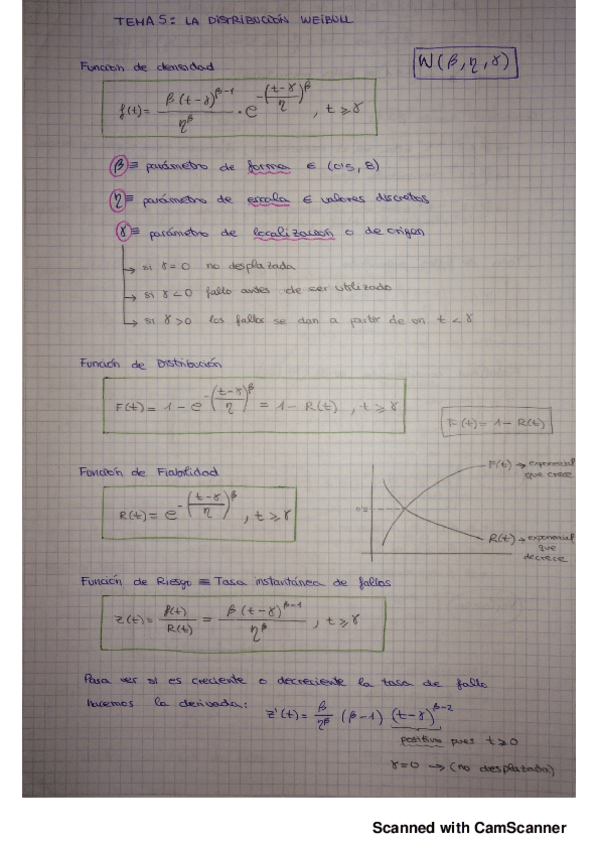 TEMA 5: LA DISTRIBUCIÓN WEIBULL
W(β, η, γ)
Función de densidad
f(t) = β(t-γ)^β-1 / η^β · e^-((t-γ)/η)^β , t ≥ γ
β ≡ parámetro de forma ∈ (0'5, 5)
η ≡ parámetro de escala ∈ valores discretos
γ ≡ parámetro de localización o de origen
→ si γ = 0 no desplazada
→ si γ < 0 fallo antes de ser utilizado
→ si γ > 0 los fallos se dan a partir de un t < γ
Función de Distribución
F(t) = 1 - e^-((t-γ)/η)^β = 1 - R(t) , t ≥ γ
F(t) = 1 - R(t)
Función de Fiabilidad
R(t) = e^-((t-γ)/η)^β , t ≥ γ
F(t) → exponencial
que crece
R(t) → exponencial
que
decrece
Función de Riesgo ≡ Tasa instantánea de fallos
Z(t) = f(t)/R(t) = β(t-γ)^β-1 / η^β , t ≥ γ
Para ver si es creciente o decreciente la tasa de fallo
hacemos la derivada: Z'(t) = β/η^β (β-1) (t-γ)^β-2
positivo pues t ≥ 0
γ = 0 → (no desplazada)
Scanned with CamScanner